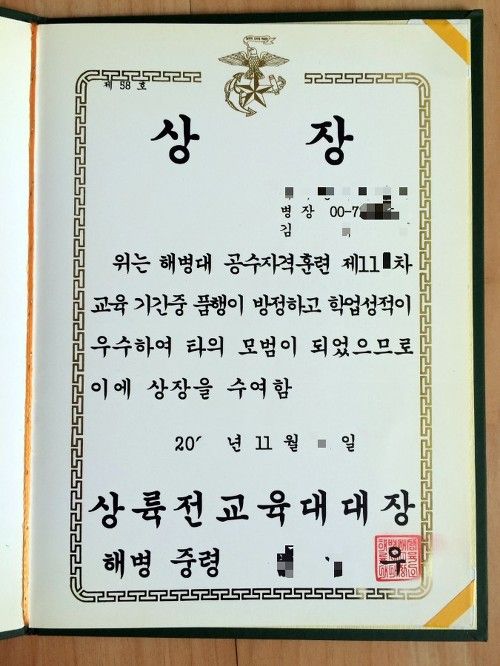 제 58 호
상 장
병 장 00-7
김
위는 해병대 공수자격훈련 제11 차
교육 기간중 품행이 방정하고 학업성적이
우수하여 타의 모범이 되었으므로
이에 상장을 수여함
20 년 11 월 일
상륙전교육대대장
해병 중령